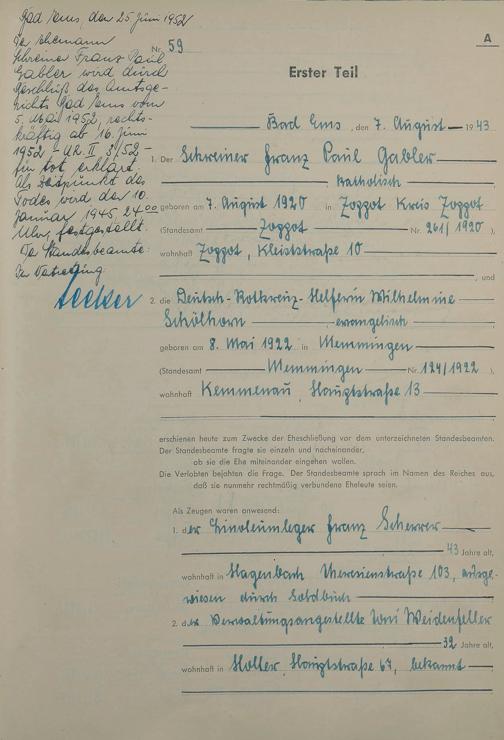 Bad Ems, den 25 Juni 1952
Der Ehemann
Schreiner Franz Paul
Gabler wird durch
Beschluß des Amtsge-
richts Bad Ems vom
5. Mai 1952, rechts-
kräftig ab 16. Juni
1952 - UR. II 3/52 -
für tot erklärt
Als Zeitpunkt des
Todes wird der 10.
Januar 1945, 24⁰⁰
Uhr, festgestellt.
Der Standesbeamte:
In Vertretung:
Nr. 59
A
Erster Teil
Bad Ems, den 7. August 1943
1. Der Schreiner Franz Paul Gabler
katholisch
geboren am 7. August 1920 in Zoppot Kreis Zoppot
(Standesamt Zoppot Nr. 261/1920),
wohnhaft Zoppot, Kleiststraße 10
und
2. die Deutsch-Rotkreuz-Helferin Wilhelmine
Schölhorn evangelisch
geboren am 8. Mai 1922 in Memmingen
(Standesamt Memmingen Nr. 124/1922),
wohnhaft Kemmenau, Hauptstraße 13
erschienen heute zum Zwecke der Eheschließung vor dem unterzeichneten Standesbeamten.
Der Standesbeamte fragte sie einzeln und nacheinander,
ob sie die Ehe miteinander eingehen wollen.
Die Verlobten bejahten die Frage. Der Standesbeamte sprach im Namen des Reiches aus,
daß sie nunmehr rechtmäßig verbundene Eheleute seien.
Als Zeugen waren anwesend:
1. der Linoleumleger Franz Scherrer
43 Jahre alt,
wohnhaft in Hagenbach Theresienstraße 103, ausge-
wiesen durch Soldbuch
2. der Verwaltungsangestellte Toni Weidenfeller
32 Jahre alt,
wohnhaft in Holler, Hauptstraße 67, bekannt